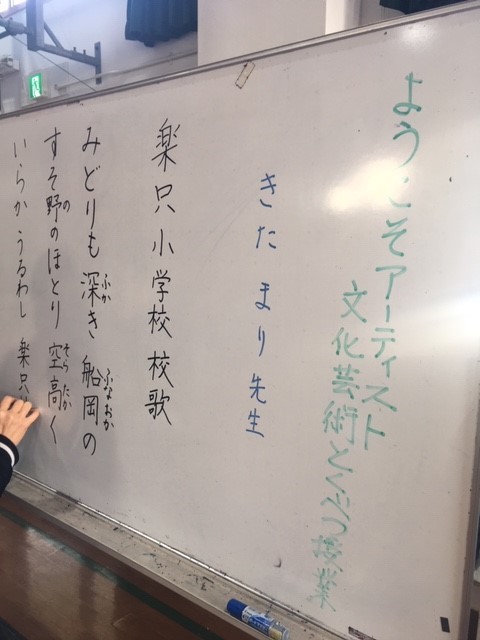 ようこそアーティスト
文化芸術とくべつ授業
きたまり先生
楽只小学校 校歌
みどりも深き 船岡の
ふか
ふなおか
すそ野のほとり 空高く
の
そら たか
いらかうるわし 楽只